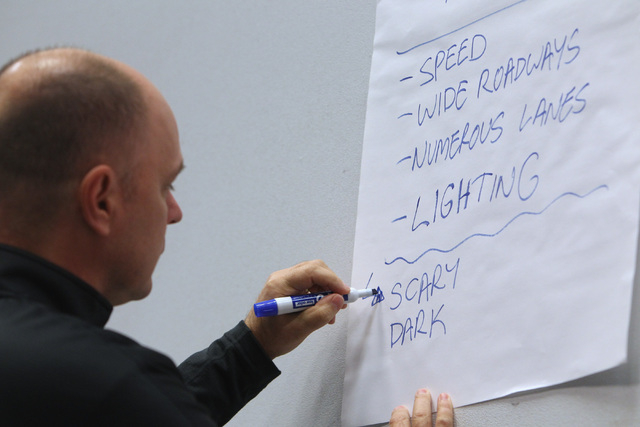 - SPEED
- WIDE ROADWAYS
- NUMEROUS LANES
- LIGHTING
SCARY
DARK